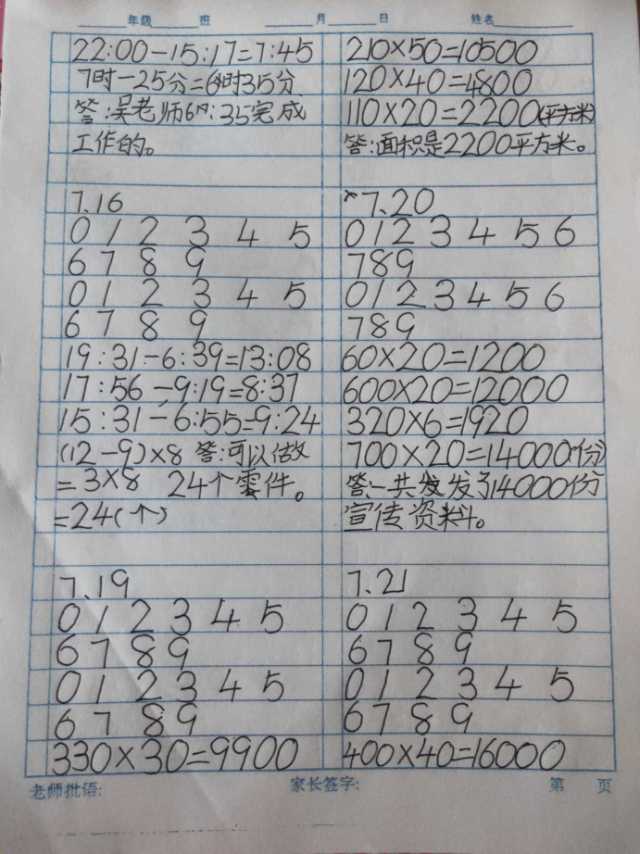 年级 班 月 日 姓名
22:00-15:17=7:45
7时-25分=6时35分
答:吴老师6时:35完成
工作的。
7.16
0 1 2 3 4 5
6 7 8 9
0 1 2 3 4 5
6 7 8 9
19:31-6:39=13:08
17:56-9:19=8:37
15:31-6:55=9:24
(12-9)×8 答:可以做
=3×8 24个零件。
=24(个)
7.19
0 1 2 3 4 5
6 7 8 9
0 1 2 3 4 5
6 7 8 9
330×30=9900
210×50=10500
120×40=4800
110×20=2200(平方米)
答:面积是2200平方米。
7.20
0 1 2 3 4 5 6
7 8 9
0 1 2 3 4 5 6
7 8 9
60×20=1200
600×20=12000
320×6=1920
700×20=14000(份)
答:一共发了14000份
宣传资料。
7.21
0 1 2 3 4 5
6 7 8 9
0 1 2 3 4 5
6 7 8 9
400×40=16000
老师批语: 家长签字: 第 页